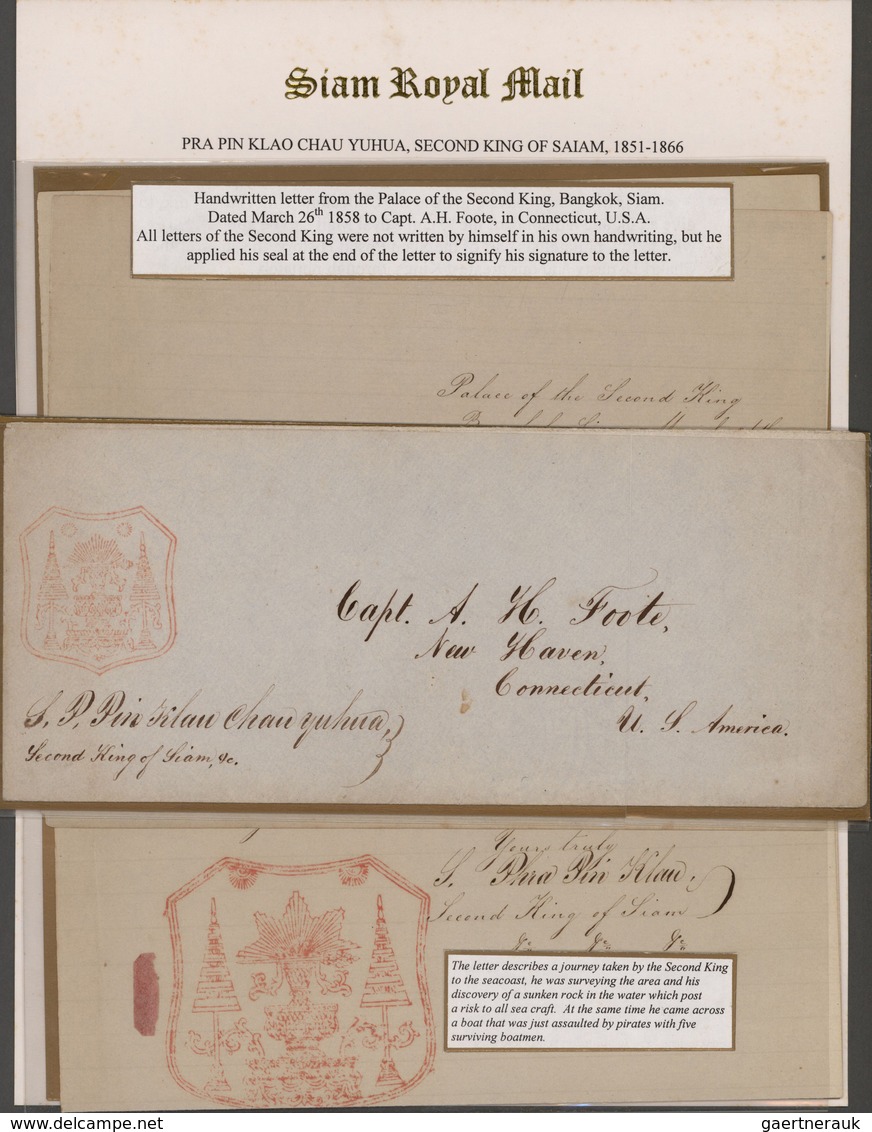 Siam Royal Mail
PRA PIN KLAO CHAU YUHUA, SECOND KING OF SAIAM, 1851-1866
Handwritten letter from the Palace of the Second King, Bangkok, Siam.
Dated March 26th 1858 to Capt. A.H. Foote, in Connecticut, U.S.A.
All letters of the Second King were not written by himself in his own handwriting, but he
applied his seal at the end of the letter to signify his signature to the letter.
Palace of the Second King
Capt. A. H. Foote,
New Haven,
Connecticut,
U. S. America.
S. P. Pin Klau Chau yuhua,
Second King of Siam, &c.
Yours truly
S. Phra Pin Klau.
Second King of Siam
&c &c &c
The letter describes a journey taken by the Second King
to the seacoast, he was surveying the area and his
discovery of a sunken rock in the water which post
a risk to all sea craft. At the same time he came across
a boat that was just assaulted by pirates with five
surviving boatmen.
gaertnerauk